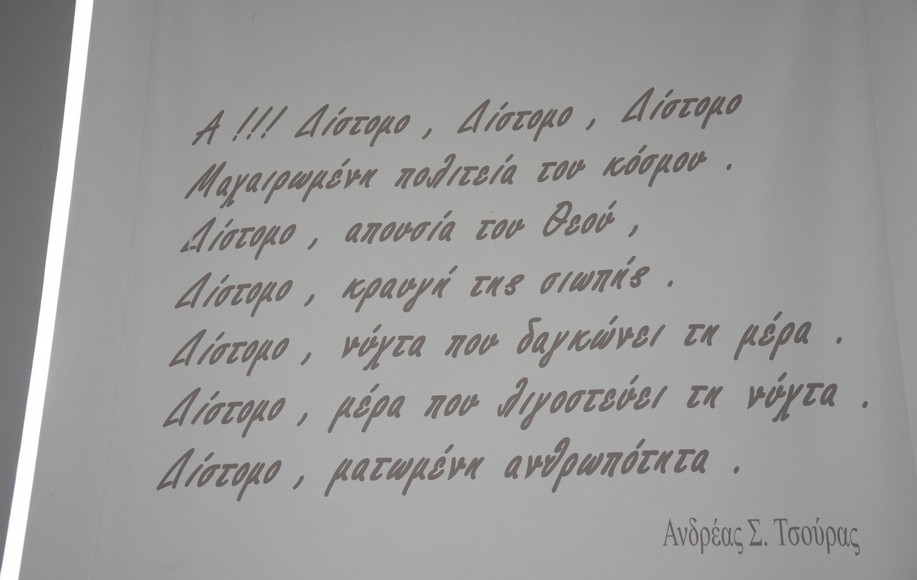 Α !!! Δίστομο , Δίστομο , Δίστομο
Μαχαιρωμένη πολιτεία του κόσμου .
Δίστομο , απουσία του Θεού ,
Δίστομο , κραυγή της σιωπής .
Δίστομο , νύχτα που δαγκώνει τη μέρα .
Δίστομο , μέρα που λιγοστεύει τη νύχτα .
Δίστομο , ματωμένη ανθρωπότητα .
Ανδρέας Σ. Τσούρας